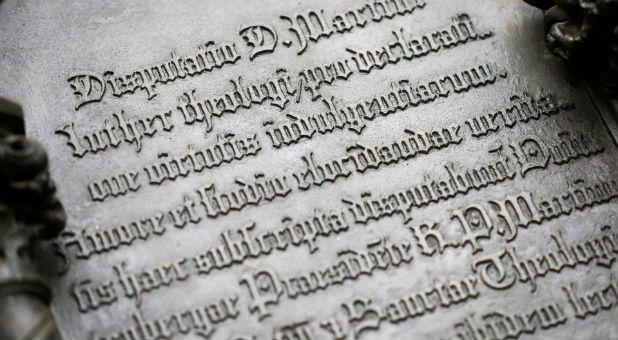 Disputatio D. Martini
Luther theologi, pro declarati-
one virtutis indulgentiarum.
Amore et studio elucidandae verita-
tis haec subscripta disputabunt
Praesidēte R. P. Martino
Sanctae Theologi
ibidem